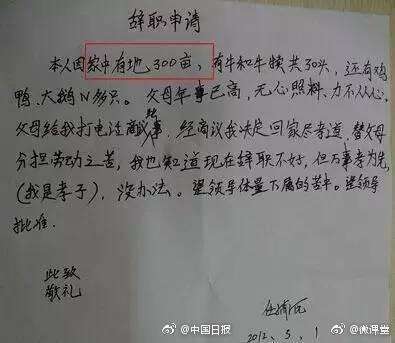 辞职申请
本人因家中有地300亩、有牛和牛犊共30头，还有鸡
鸭、大鹅N多只。父母年事已高，无心照料、力不从心，
父母给我打电话商议事，经商议我决定回家尽孝道，替父母
分担劳动之苦，我也知道现在辞职不好，但万事孝为先，
(我是孝子)，没办法。望领导体量下属的苦中。望领导
批准。
此致
敬礼
2012、5、1
@中国日报
@微课堂